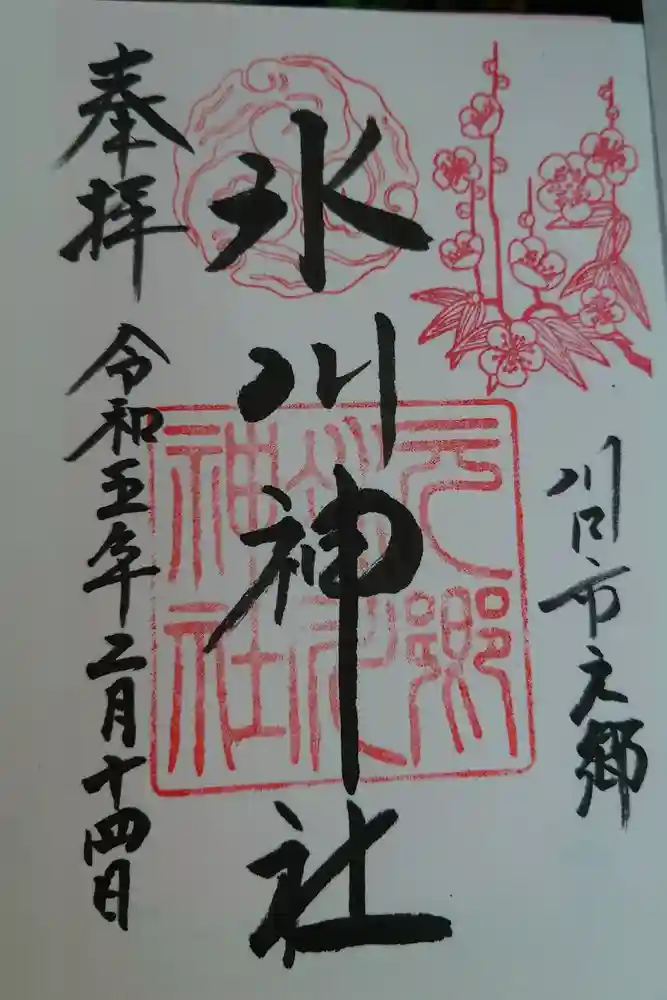 川口市元郷
氷川神社
奉拝
令和五年二月十四日
元郷
氷川
神社